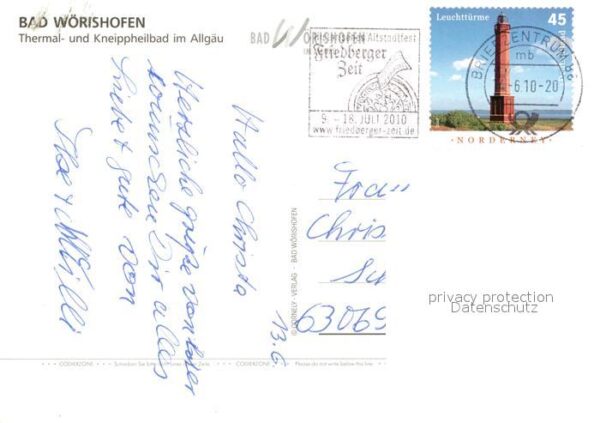 BAD WÖRISHOFEN
Thermal- und Kneippheilbad im Allgäu
BAD WÖRISHOFEN
Altstadtfest
Friedberger
Zeit
9. - 18. JULI 2010
www.friedberger-zeit.de
BRIEFZENTRUM 86
mb
-6.10-20
Leuchttürme
45
NORDERNEY
13.6.
Hallo Christa
Herzliche Grüße von hier
wünschen Dir alles
Liebe + gute von
+ Willi
© CORNELY - VERLAG - BAD WÖRISHOFEN
Frau
Chris
Su
63069
privacy protection
Datenschutz
CODIERZONE
CODIERZONE
Please do not write below this line